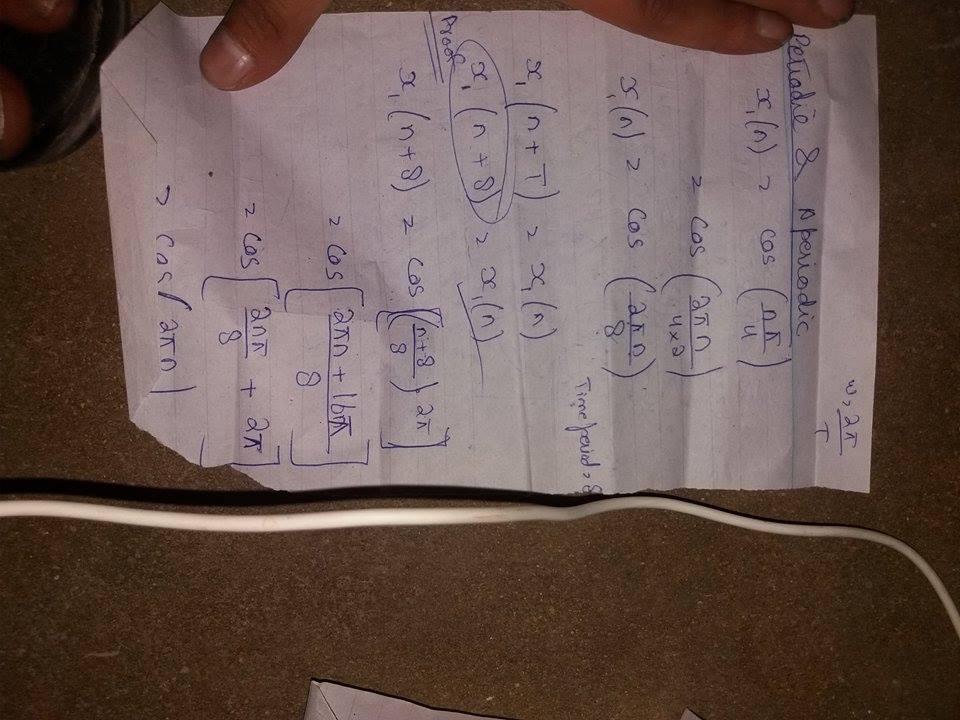 w = 2π/T
Periodic & Aperiodic
x₁(n) = cos (nπ/4)
= cos (2πn/4×2)
x₁(n) = cos (2πn/8)
Time period = 8
x₁(n+T) = x₁(n)
x₁(n+8) = x₁(n)
Proof
x₁(n+8) = cos [(n+8/8) 2π]
= cos [2πn + 16π/8]
= cos [2nπ/8 + 2π]
= cos (2πn)